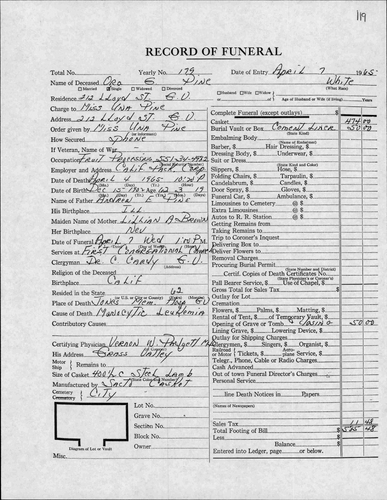 119
RECORD OF FUNERAL
Total No. Yearly No. 179 Date of Entry April 7 1965
Name of Deceased Ora E Pine White
Married Single Widowed Divorced (What Race)
Residence 212 Lloyd St. G.V. Husband Wife Widow of Age of Husband or Wife (if living) Years
Charge to Miss Una Pine
Address 212 Lloyd St G.V.
Order given by Miss Una Pine
How Secured Phone
If Veteran, Name of War
Occupation Fruit Processing
Employer and Address Calif Pack Corp
Date of Death April 4 1965 10:20 P
Date of Birth Dec 15
Name of Father Andrew E Pine
His Birthplace Ill
Maiden Name of Mother Lillian
Her Birthplace Nev
Date of Funeral April 7 Wed 1:00 PM
Services at First Congregational Church
Clergyman Dr. C Carvy G.V.
Religion of the Deceased
Birthplace Calif
Resided in the State 62
Place of Death Jones Mem. Hosp GV
Cause of Death Monocytic Leukemia
Contributory Causes
Certifying Physician Vernon W MD
His Address Grass Valley
Motor Ship Remains to
Size of Casket 400 LC Steel Lamb
Manufactured by Sacto Casket
Cemetery Crematory City
Lot No.
Grave No.
Section No.
Block No.
Owner
Diagram of Lot or Vault
Misc.
Complete Funeral (except outlays) $
Casket 474 00
Burial Vault or Box Cement Liner 50 00
Embalming Body
Barber, $ Hair Dressing, $
Dressing Body, $ Underwear, $
Suit or Dress
Slippers, $ Hose, $
Folding Chairs, $ Tarpaulin, $
Candelabrum, $ Candles, $
Door Spray, $ Gloves, $
Funeral Car, $ Ambulance, $
Limousines to Cemetery @ $
Extra Limousines @ $
Autos to R. R. Station @ $
Getting Remains from
Taking Remains to
Trip to Coroner's Inquest
Delivering Box to
Deliver Flowers to
Removal Charges
Procuring Burial Permit
Certif. Copies of Death Certificate No.
Pall Bearer Service, $ Use of Chapel, $
Gross Total for Sales Tax
Cremation
Flowers, $ Palms, $ Matting, $
Rental of Tent, $ of Temporary Vault, $
Opening of Grave or Tomb Closing 50 00
Lining Grave, $ Lowering Device, $
Outlay for Shipping Charges
Clergymen, $ Singers, $ Organist, $
Railroad or Motor Tickets, $ Aeroplane Service, $
Telep., Phone, Cable or Radio Charges
Cash Advanced
Out of town Funeral Director's Charges
Personal Service
line Death Notices in Papers
(Names of Newspapers)
Sales Tax 11 48
Total Footing of Bill $ 585 48
Less $
Balance $
Entered into Ledger, page or below.